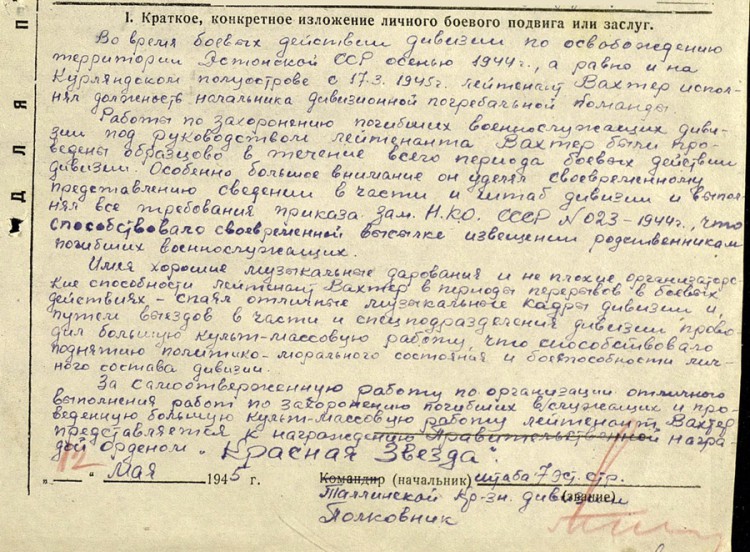 I. Краткое, конкретное изложение личного боевого подвига или заслуг.
Во время боевых действии дивизии по освобождению
территории Эстонской ССР осенью 1944 г., а равно и на
Курляндском полуострове с 17.3.1945г. лейтенант Вахтер испол-
нял должность начальника дивизионной погребальной команды.
Работы по захоронению погибших военнослужащих диви-
зии под руководством лейтенанта Вахтер были про-
ведены образцово в течение всего периода боевых действии
дивизии. Особенно большое внимание он уделял своевременному
представлению сведении в части и штаб дивизии и выпол-
нял все требования приказа зам. Н.К.О. СССР №023-1944г., что
способствовало своевременной высылке извещении родственникам
погибших военнослужащих.
Имея хорошие музыкальные дарования и не плохие организаторс-
кие способности лейтенант Вахтер в периоды перерывов в боевых
действиях - спаял отличные музыкальные кадры дивизии и,
путем выездов в части и спецподразделения дивизии прово-
дил большую культ-массовую работу, что способствовало
поднятию политико-морального состояния и боеспособности лич-
ного состава дивизии.
За самоотверженную работу по организации отличного
выполнения работ по захоронению погибших в/служащих и про-
веденную большую культ-массовую работу лейтенант Вахтер
представляется к награждению Правительственной награ-
дой орденом „Красная Звезда".
„12" Мая 1945 г. Командир (начальник) штаба 7 эст. стр.
Таллинской Кр-зн. дивизии
(звание)
Полковник
ДЛЯ П